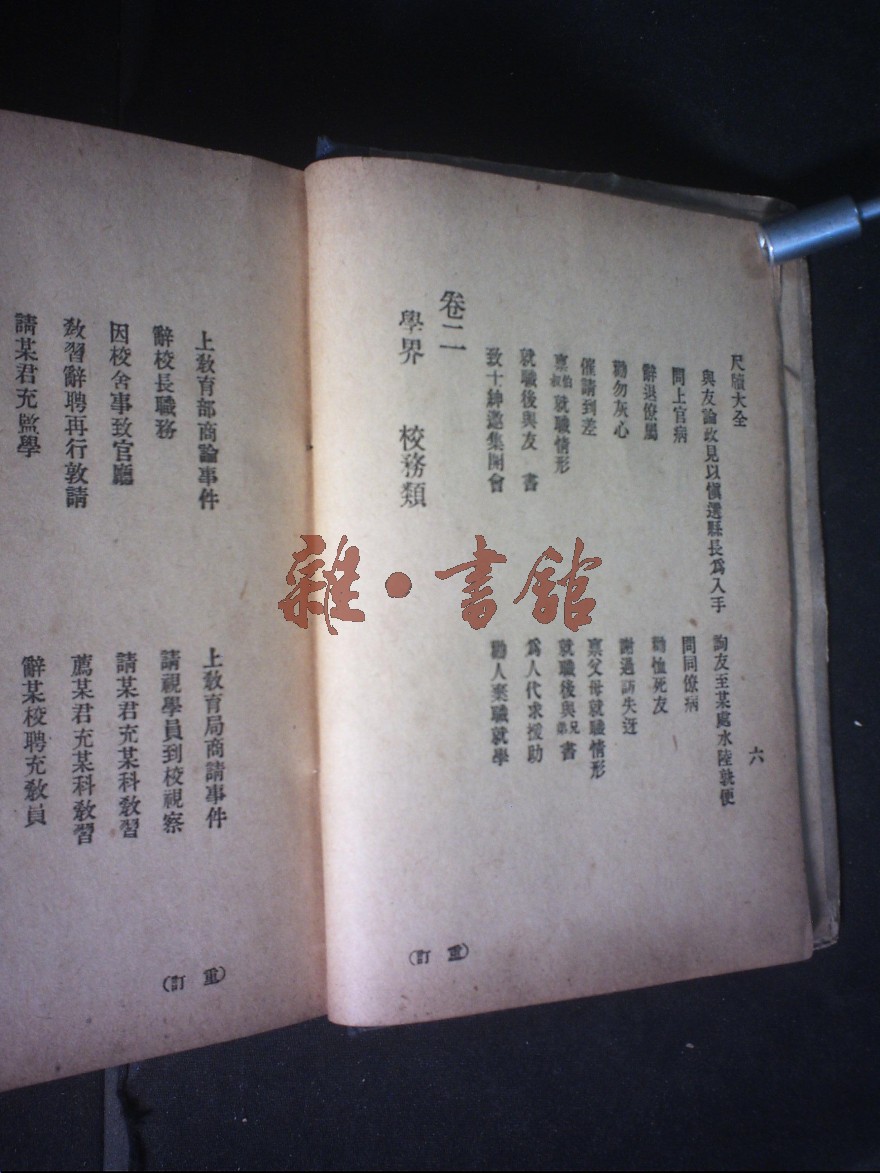 尺牘大全
六
與友論政見以愼選縣長爲入手
詢友至某處水陸孰便
問上官病
問同僚病
辭退僚屬
勸恤死友
勸勿灰心
謝過訪失迓
催請到差
稟父母就職情形
稟伯叔就職情形
就職後與兄弟書
就職後與友 書
爲人代求援助
致士紳邀集開會
勸人棄職就學
卷二
學界 校務類
(重訂)
上敎育部商論事件
上敎育局商請事件
辭校長職務
請視學員到校視察
因校舍事致官廳
請某君充某科敎習
敎習辭聘再行敦請
薦某君充某科敎習
請某君充監學
辭某校聘充敎員
(重訂)
雜·書館